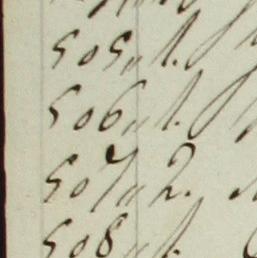 505„ 1.
506„ 1.
507„ 2.
508„ 1.